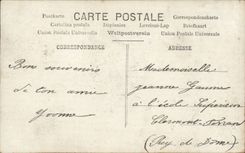 CARTE POSTALE
Postkarte Dopisnice Correspondenzkarte
Cartolina postale Levelezo-Lap Briefkaart
Union Postale Universelle Weltpostverein Union Postal Universal
CORRESPONDANCE
ADRESSE
Bon souvenir
de ton amie
Yvonne
Mademoiselle
Jeanne
à l'école Supérieure
Clermont-Ferrand
(Puy de Dôme)